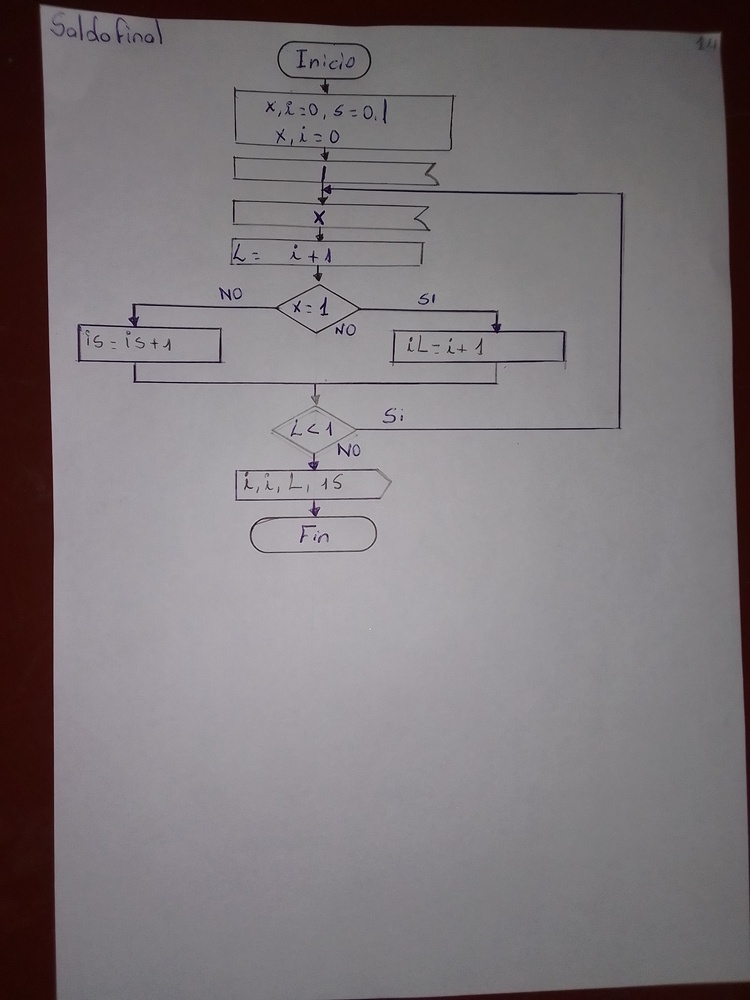 Saldo final
14
Inicio
x, i = 0, s = 0. |
x, i = 0
x
L = i + 1
NO
x = 1
SI
NO
is = is + 1
iL = i + 1
L < 1
Si
NO
i, i, L, 1S
Fin